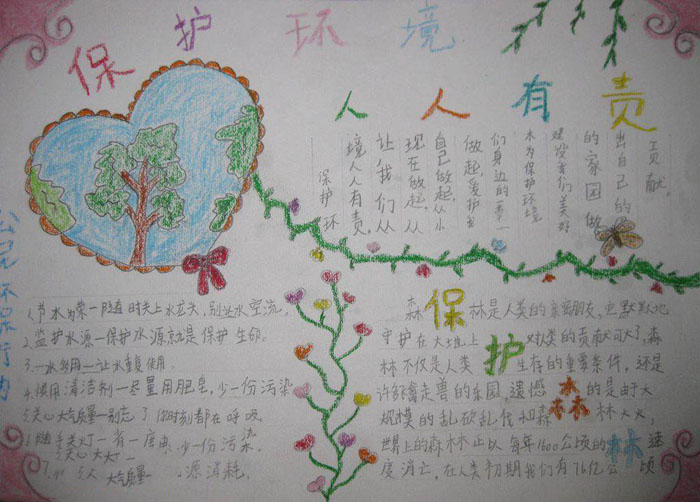 保护环境
人人有责
保护环
境人人有责,
让我们从
现在做起,从
自己做起,从小
做起,爱护我
们身边的一草一
木为保护环境
建设我们美好
的家园做
出自己的
贡献.
公民环保行为
1.节水为荣一随时关上水龙头,别让水空流.
2.监护水源一保护水源就是保护生命.
3.一水多用一让水重复使用.
4.慎用清洁剂一尽量用肥皂,少一份污染
关心大气质量一别忘了你时刻都在呼吸.
随手关灯一省一度电,少一份污染
大气质量
源消耗.
森保林是人类的亲密朋友,它默默地
守护在大地上护对人类的贡献可大了,森
林不仅是人类生存的重要条件,还是
许多飞禽走兽的乐园,遗憾森的是由于大
规模的乱砍乱伐和森林大火,
世界上的森林正以每年1600公顷的林速
度消亡,在人类初期我们有76亿公顷